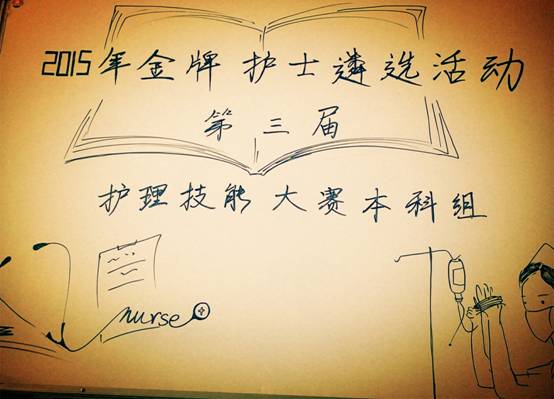 2015年金牌护士遴选活动
第三届
护理技能大赛本科组
nurse